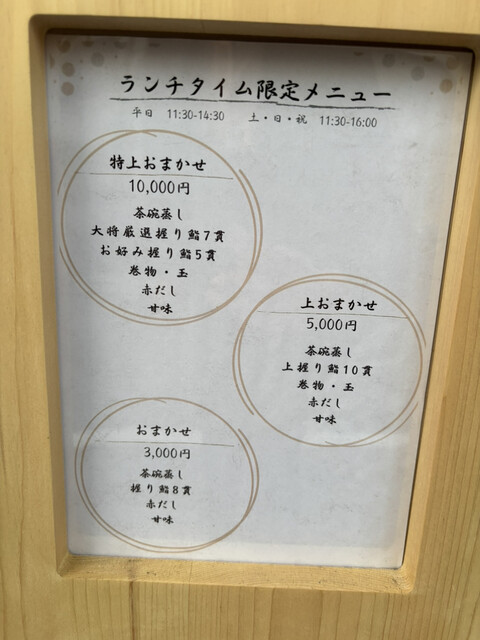 ランチタイム限定メニュー
平日 11:30-14:30 土・日・祝 11:30-16:00
特上おまかせ
10,000円
茶碗蒸し
大将厳選握り鮨7貫
お好み握り鮨5貫
巻物・玉
赤だし
甘味
上おまかせ
5,000円
茶碗蒸し
上握り鮨10貫
巻物・玉
赤だし
甘味
おまかせ
3,000円
茶碗蒸し
握り鮨8貫
赤だし
甘味